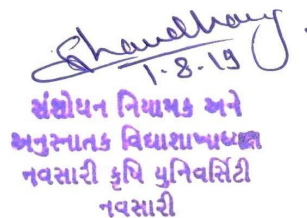 Chaudhary
1-8-19
સંશોધન નિયામક અને
અનુસ્નાતક વિદ્યાશાખાધ્યક્ષ
નવસારી કૃષિ યુનિવર્સિટી
નવસારી